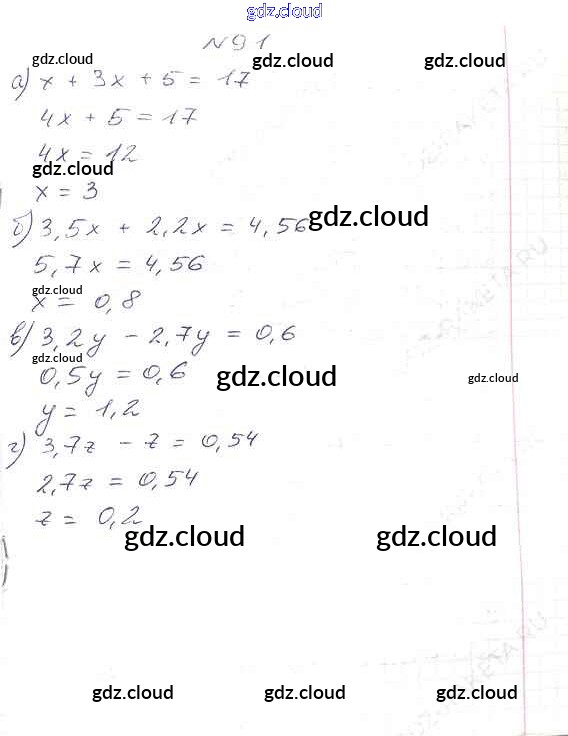 gdz.cloud
№ 91
gdz.cloud gdz.cloud gdz.cloud
а) x + 3x + 5 = 17
4x + 5 = 17
4x = 12
gdz.cloud
x = 3
б) 3,5x + 2,2x = 4,56
gdz.cloud
5,7x = 4,56
gdz.cloud
x = 0,8
в) 3,2y - 2,7y = 0,6
gdz.cloud
0,5y = 0,6
gdz.cloud gdz.cloud
y = 1,2
г) 3,7z - z = 0,54
2,7z = 0,54
z = 0,2
gdz.cloud gdz.cloud
gdz.cloud gdz.cloud gdz.cloud